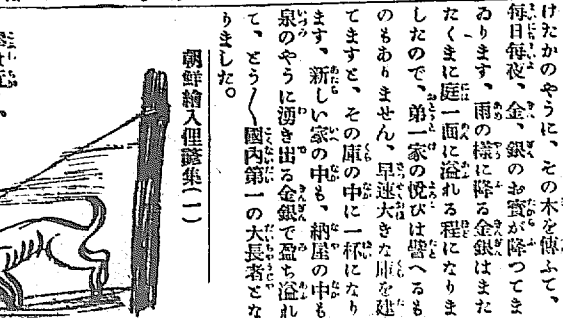 けたかのやうに、その木を傳ふて、
每日每夜、金、銀のお寳が降つてま
ゐります、雨の樣に降る金銀はまた
たくまに庭一面に溢れる程になりま
したので、弟一家の悅びは譬へるも
のもありません、早速大きな庫を建
てますと、その庫の中に一杯になり
ます、新しい家の中も、納屋の中も
泉のやうに湧き出る金銀で盈ち溢れ
て、とう〳〵國內第一の大長者とな
りました。
朝鮮繪入俚諺集(一)